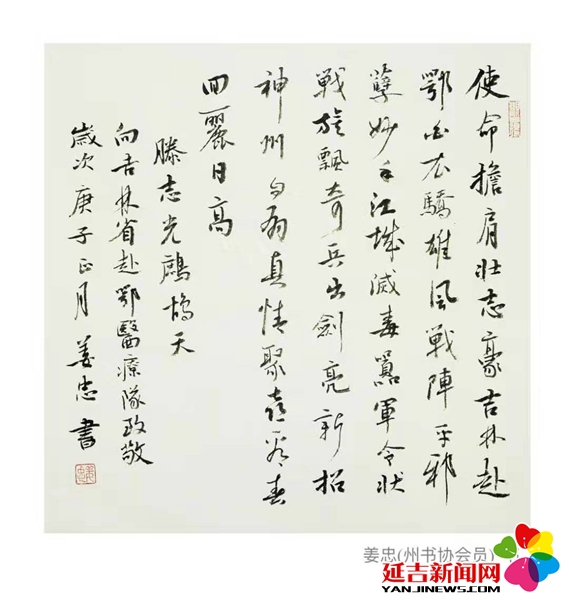 使命擔肩壯志豪吉林赴
鄂白衣驕雄風戰陣平邪
孽妙手江城滅毒囂軍令狀
戰旌飄奇兵出劍亮新招
神州真情聚喜看春
回麗日高
滕志光鷓鴣天
向吉林省赴鄂醫療隊致敬
歲次庚子正月姜忠書
姜忠(州书协会员)
延吉新闻网
YANJINEWS.COM